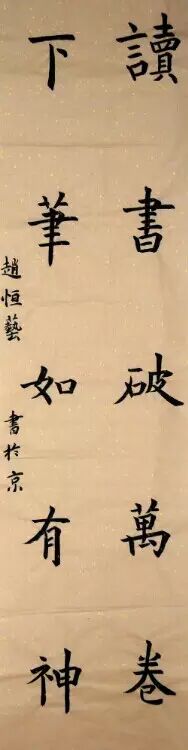 讀書破萬卷
下筆如有神
趙恒藝 書於京